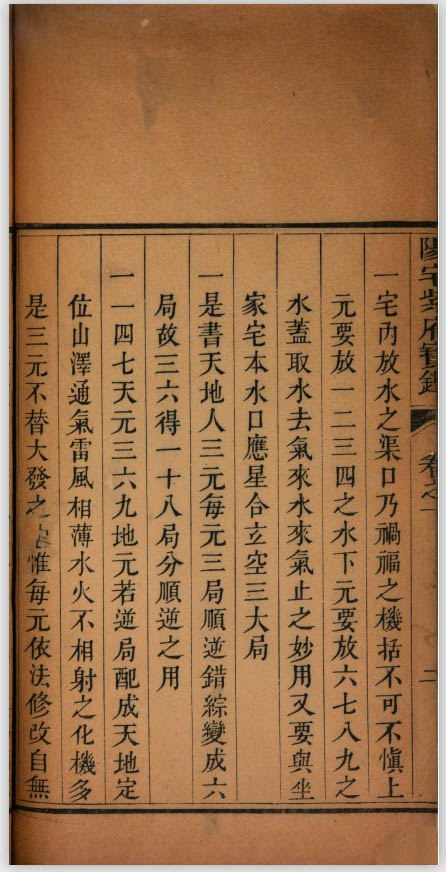 陽宅紫府寶鑑 卷之一 二
一宅內放水之渠口乃禍福之機括不可不慎上
元要放一二三四之水下元要放六七八九之
水蓋取水去氣來水來氣止之妙用又要與坐
家宅本水口應星合立空三大局
一是書天地人三元每元三局順逆錯綜變成六
局故三六得一十八局分順逆之用
一一四七天元三六九地元若逆局配成天地定
位山澤通氣雷風相薄水火不相射之化機多
是三元不替大發之 惟每元依法修改自無